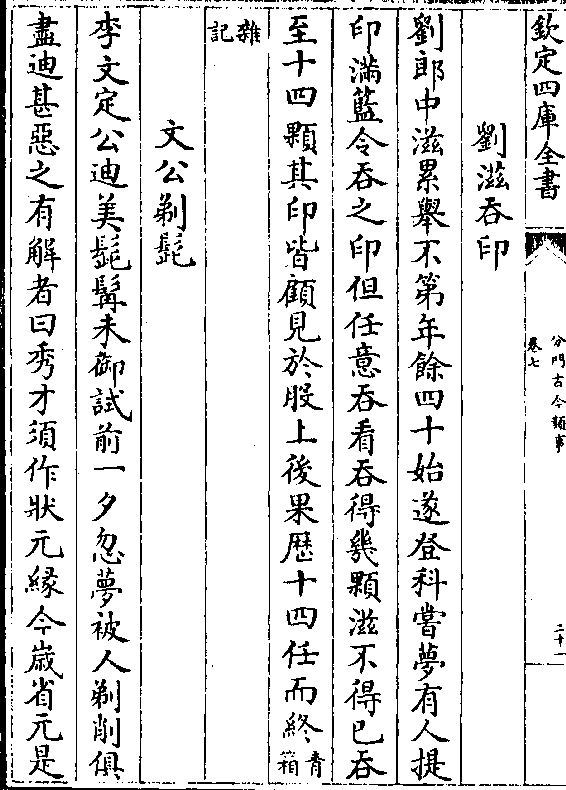 欽定四庫全書
分門古今類事
卷七
二十一
劉滋吞印
劉郎中滋累舉不第年餘四十始遂登科嘗夢有人提
印滿籃令吞之印但任意吞看吞得幾顆滋不得已吞
至十四顆其印皆顧見於股上後果歴十四任而終青箱
雜記
文公剃髭
李文定公迪美髭髯未御試前一夕忽夢被人剃削俱
盡迪甚惡之有解者曰秀才須作狀元緣今歳省元是